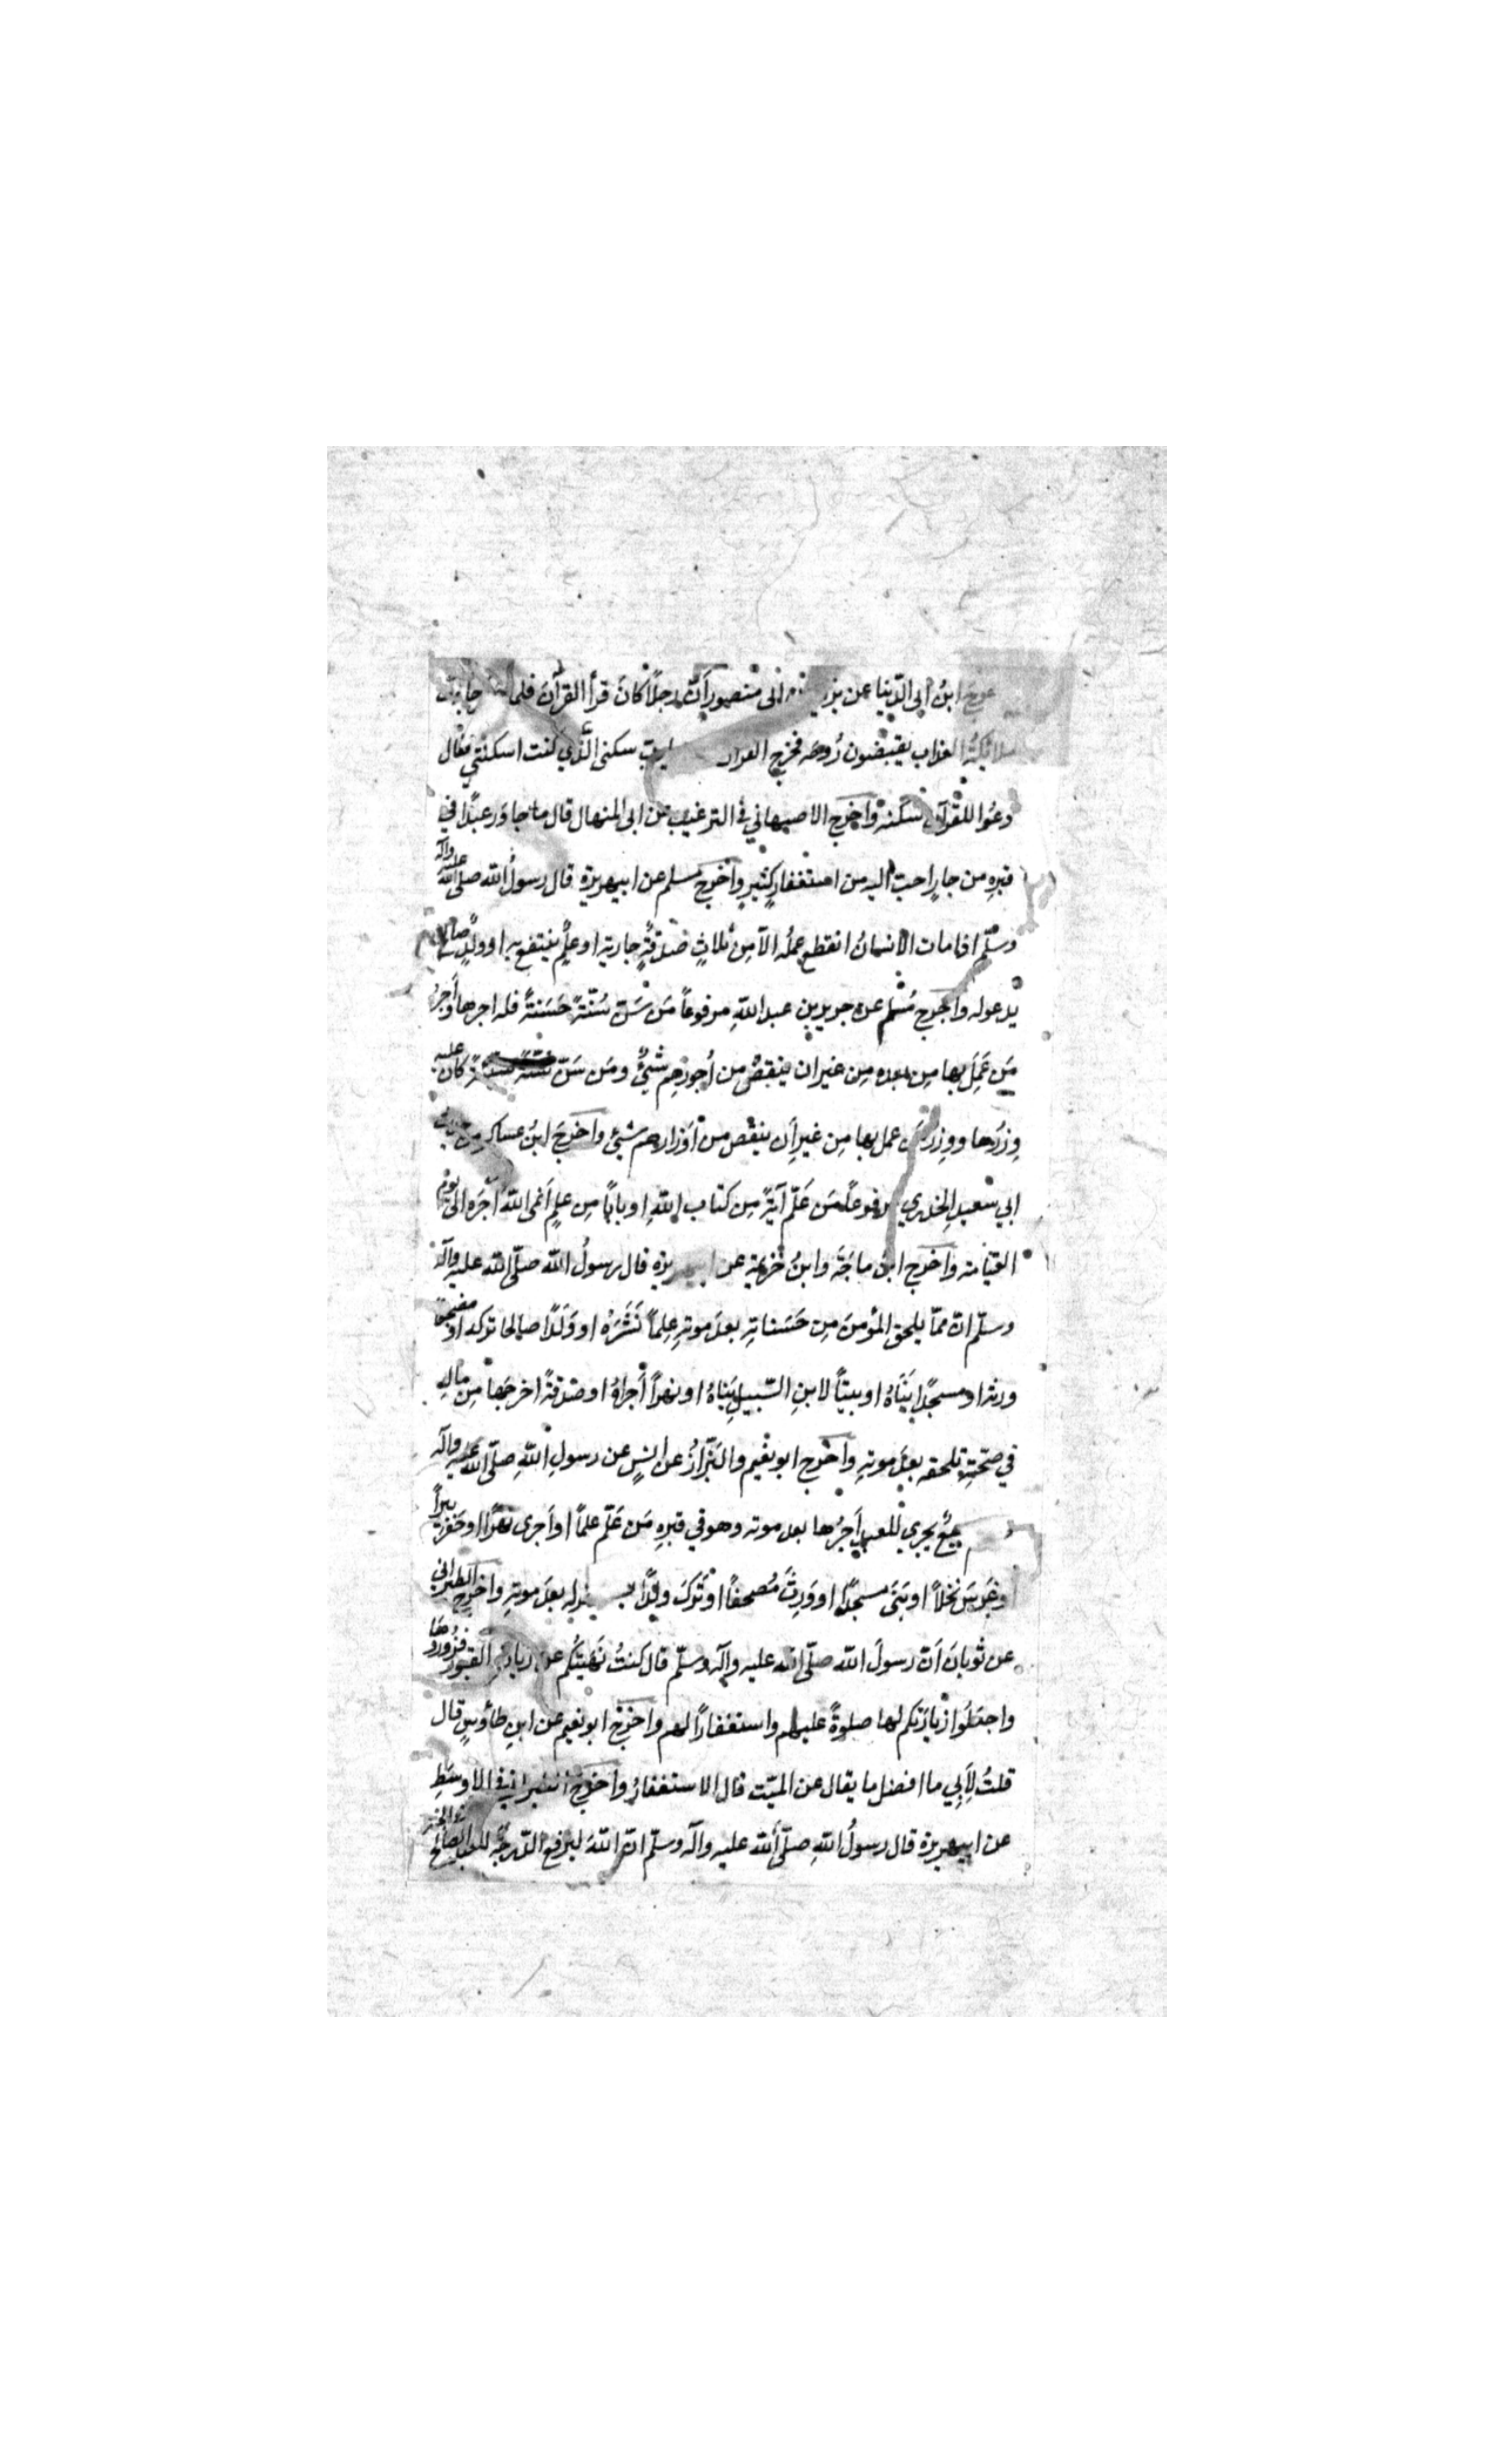 ابنُ ابى الدّنيا عن ابى منصور اَنّ رجلًا كانَ قرأ القرآنَ فلما جاءت
ملائكةُ العذاب يقبضون رُوحَه فخرج القرآن يارب سكنى الّذي كنت اسكنتني فقال
دعُوا للقرآن سكنه واخرج الاصبهاني في الترغيب عن ابى المنهال قال ما جاوَر عبدًا في
قبرِه من جارٍ احبّ اليه من استغفارٍ كثيرٍ واخرج مسلم عن ابيهريرة قال رسولُ الله صلى الله عليه وآله
وسلّم اذا مات الانسانُ انقطع عملُه الاّ مِن ثلاثٍ صَدقةٍ جاريةٍ او علمٍ ينتفع به او ولدٍ صالح
يدعوله واخرج مُسْلم عن جرير بن عبد اللهِ مرفوعاً مَن سَنّ سُنّةً حَسَنةً فله اجرها واَجرُ
مَن عَمِلَ بها مِن بعده مِن غير ان ينقصُ من اُجورِهِم شيٌ ومَن سَنّ سُنّةً سيئةً كان عليه
وِزرُها ووِزرُ مَن عمل بها مِن غيرِ اَن ينقص من اَوزارهم شيئ واخرجَ ابنُ عساكر مِن حديث
ابي سعيدِ الخدري مرفوعاً مَن عَلّم آيةً مِن كتاب اللهِ او بابًا مِن علمٍ اَنمى اللهُ اَجرَه الى يوم
القيامة واخرج ابن ماجَةَ وابنُ خُزيمة عن ابيهريرة قال رسولُ الله صلّى الله عليه وآله
وسلّم انّ ممّا يلحق المؤمنَ مِن حَسَناتِهِ بعدَ موتهِ عِلماً نَشَرَهُ او وَلَدًا صالحا تركه او مصحفًا
ورثه او مسجدًا بَنَاهُ او بيتاً لابنِ السّبيلِ بَناهُ او نهراً اَجراهُ او صَدقةً اخرجَها مِن مالِه
في صحّتِهِ تلحقه بعدَ موتهِ واخرج ابو نعيم والبَزّارُ عن انسٍ عن رسولِ اللهِ صلّى الله عليه وآله
سبعٌ يجري للعبد اَجرُها بعد موته وهو في قبرِهِ مَن عَلّم علماً او اَجرى نهرًا او حَفرَ بيراً
او غَرسَ نخلاً او بَنَى مسجدًا او وَرثَ مُصحفًا او تَركَ ولدًا له بعدَ موتهِ واخرج الطبرانى
عن ثوبانَ اَنّ رسولَ الله صلّى الله عليه وآله وسلّم قال كنتُ نَهَيتُكُم عن زيارة القبور فزوروها
واجعَلُوا زيارَتكم لها صلوةً عليهم واستغفارًا لهم واخرج ابو نعيم عن ابنِ طاؤسٍ قال
قلتُ لِاَبِي ما افضل ما يقال عن الميّت قال الاستغفارُ واخرج الطبراني في الاوسَطِ
عن ابيهريرة قال رسولُ اللهِ صلّى الله عليه وآله وسلّم انّ اللهَ ليرفع الدّرجة للعبد الصالح في الجنة